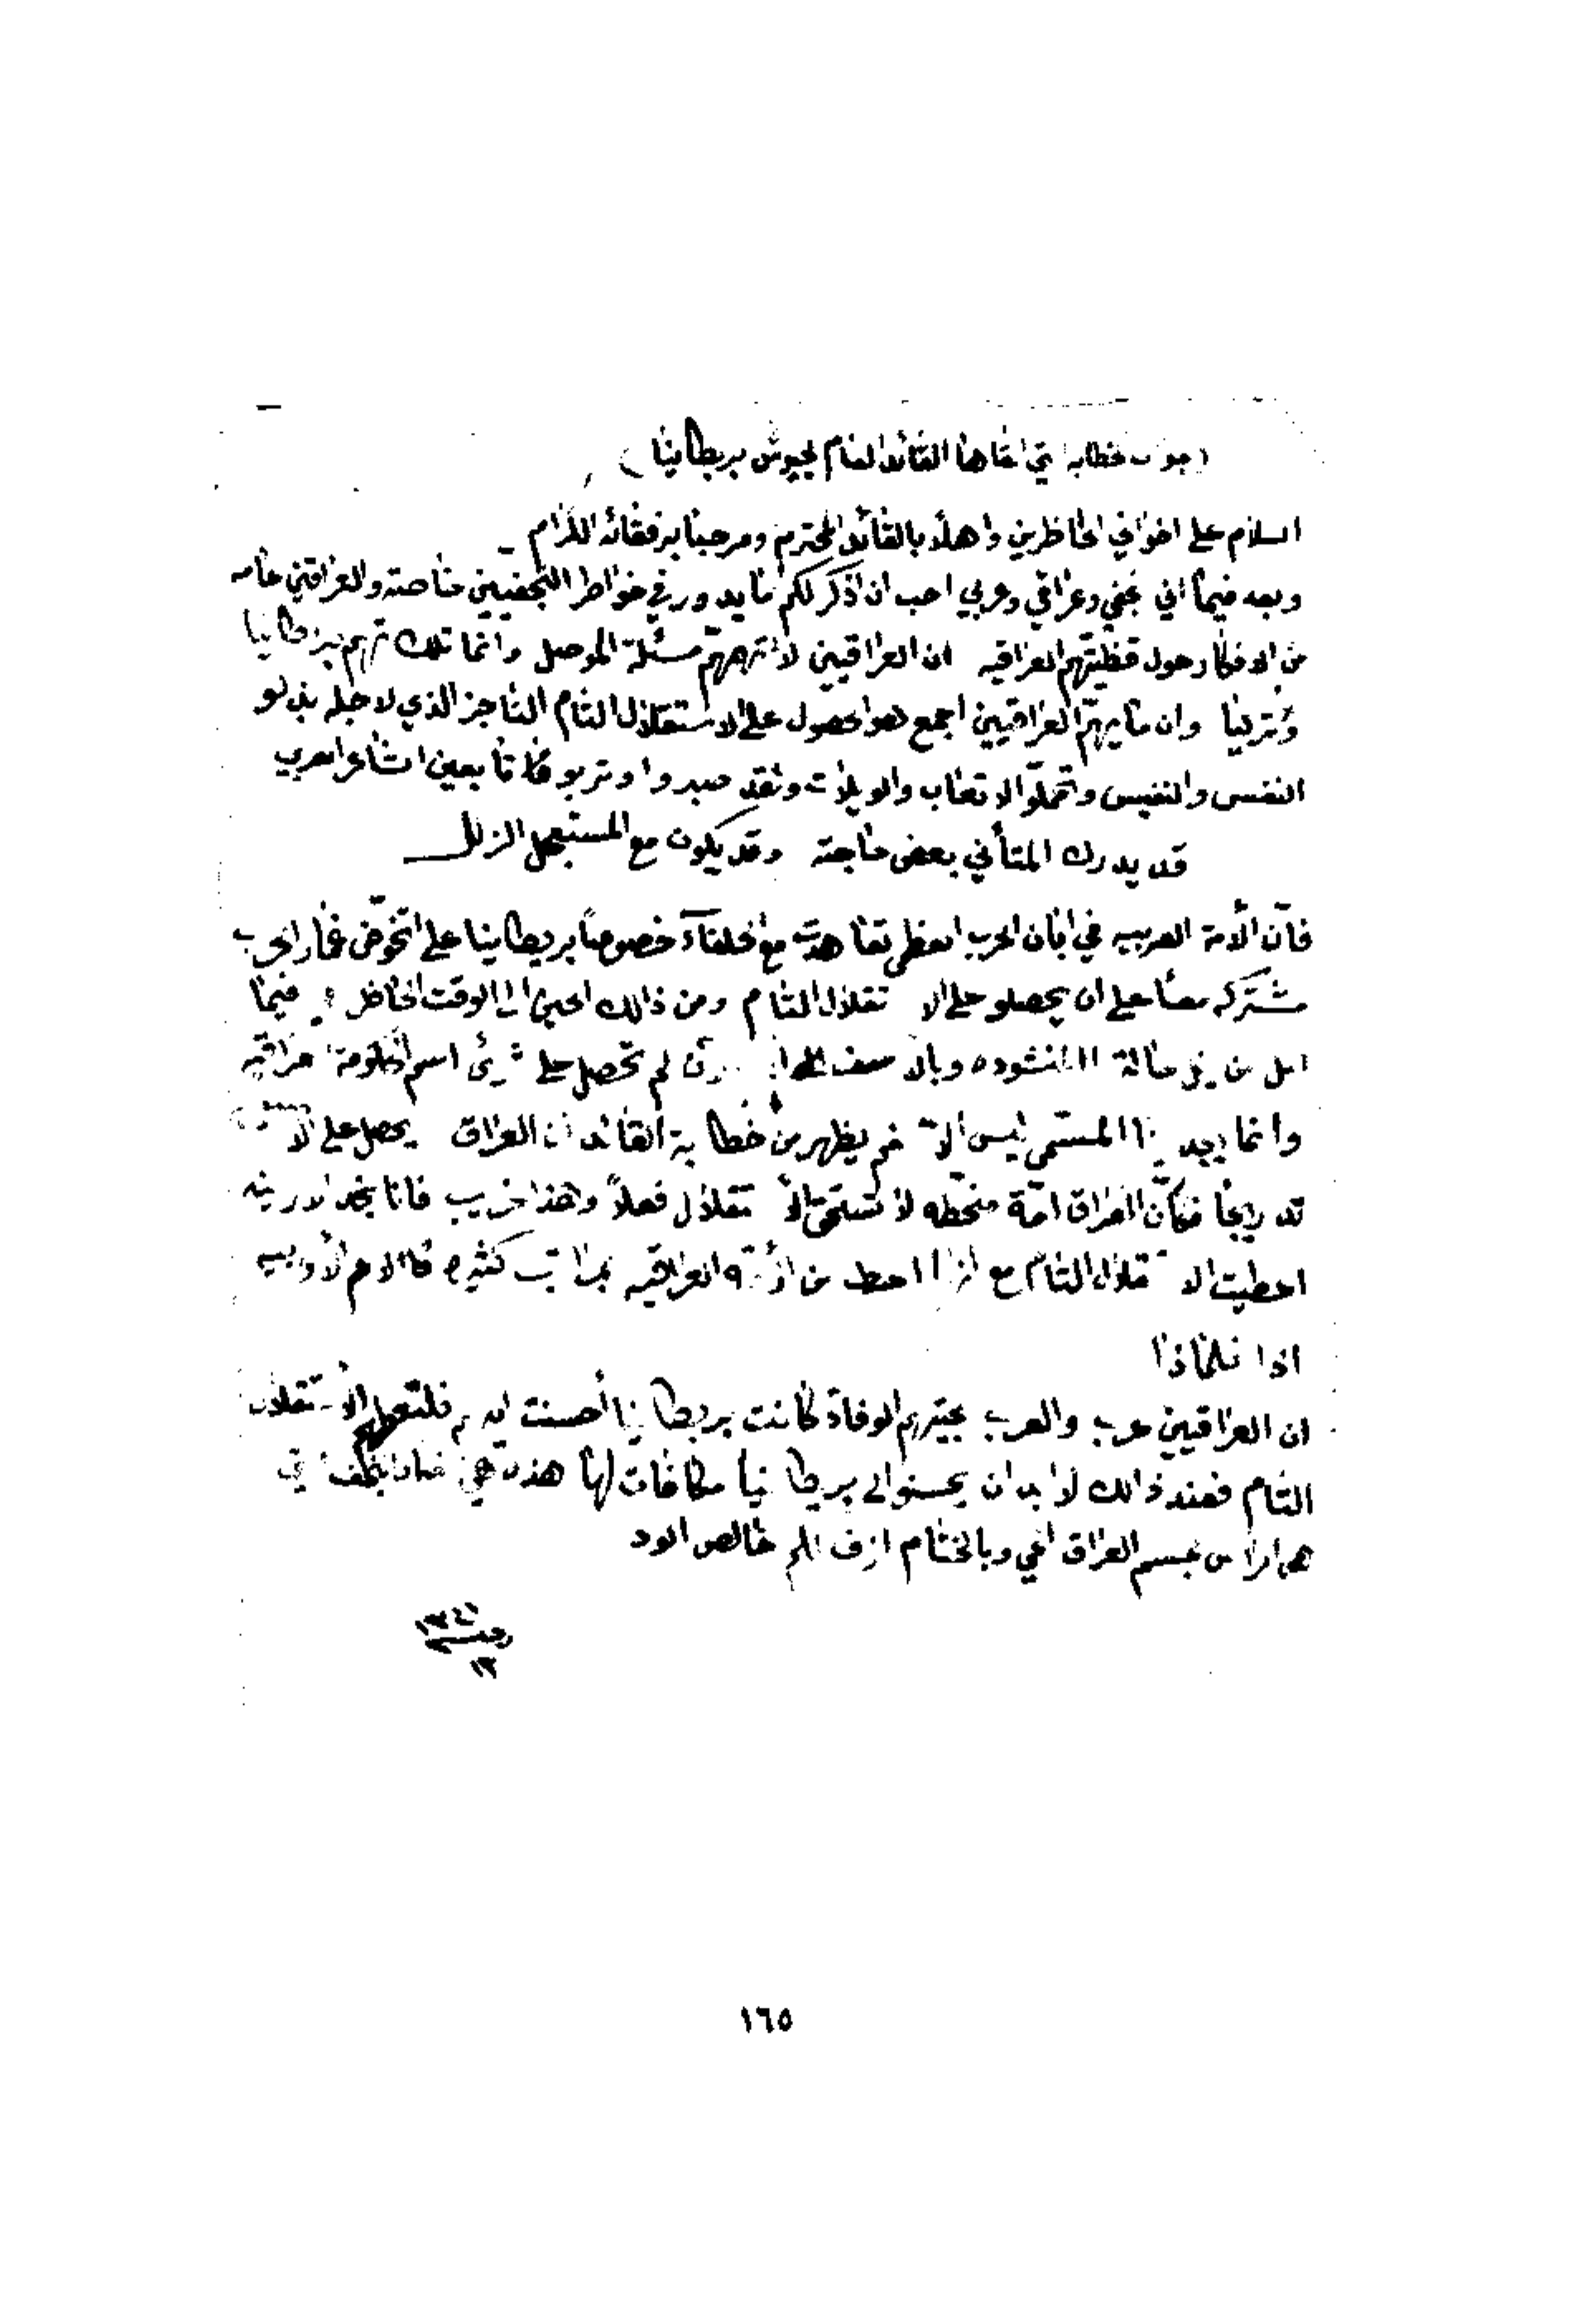 (جواب خطابه التي القاها القائد العام لجيوش بريطانيا)
السلام على اخواني الحاظرين واهلاً بالقائد المحترم ومرحبا برفقائه الكرام
وبعد فبما اني نجفي وعراقي وعربي احب ان اذكر لكم ما يدور في خواطر النجفيين خاصة والعراقيين عامه
من الافكار حول قظيتهم العراقيه ان العراقيين لا تهمهم مسئلة الموصل وانما تلك تهم بريطانيا
وتركيا وان ما يهم العراقيين اجمع هو الحصول على الاستقلال التام الناجز الذي لاجله بذلو
النفس والنفيس وتحملو الاتعاب والويلات ولقد صبروا وتربو كما تابعين الشاعر العربي
قد يدرك المتأني بعض حاجته وقد يكون مع المستعجل الزلل
فان الأمة العربيه في ابان الحرب العظمى تعاهدت مع الخلفآء خصوصاً بريطانيا على تخوض غمار الحرب
مشتركه معا على ان يحصلو على الا تقلال التام ومن ذالك الحين الى الوقت الحاظر فبما
امل من في حالة المنشوده وبالا سف لم تحصل على شيئ اسم الحكومة عراقيه
وانما يوجد المسمى ليس الا ثم يظهر من خطابة القائد ان العراق يحصل على الا
تدريجا فكأن العراق امة منحطه لا تستحق الا تقلال فعلاً وهذا غريب فانا نجد
اعطيت الا تقلال التام مع انها احط من الأمة العراقيه بمراتب كثيره كالامم
اذا فلماذا
ان العراقيين عرب والعرب بجيتهم الوفاء كانت بريطانيا أحسنت اليهم فلتعطهم الاستقلال
التام فعند ذالك لا بد ان يحسنو الى بريطانيا مكافات لها هذه هي
من جسم العراق وبالختام ازف لكم خالص الود
١٦٥